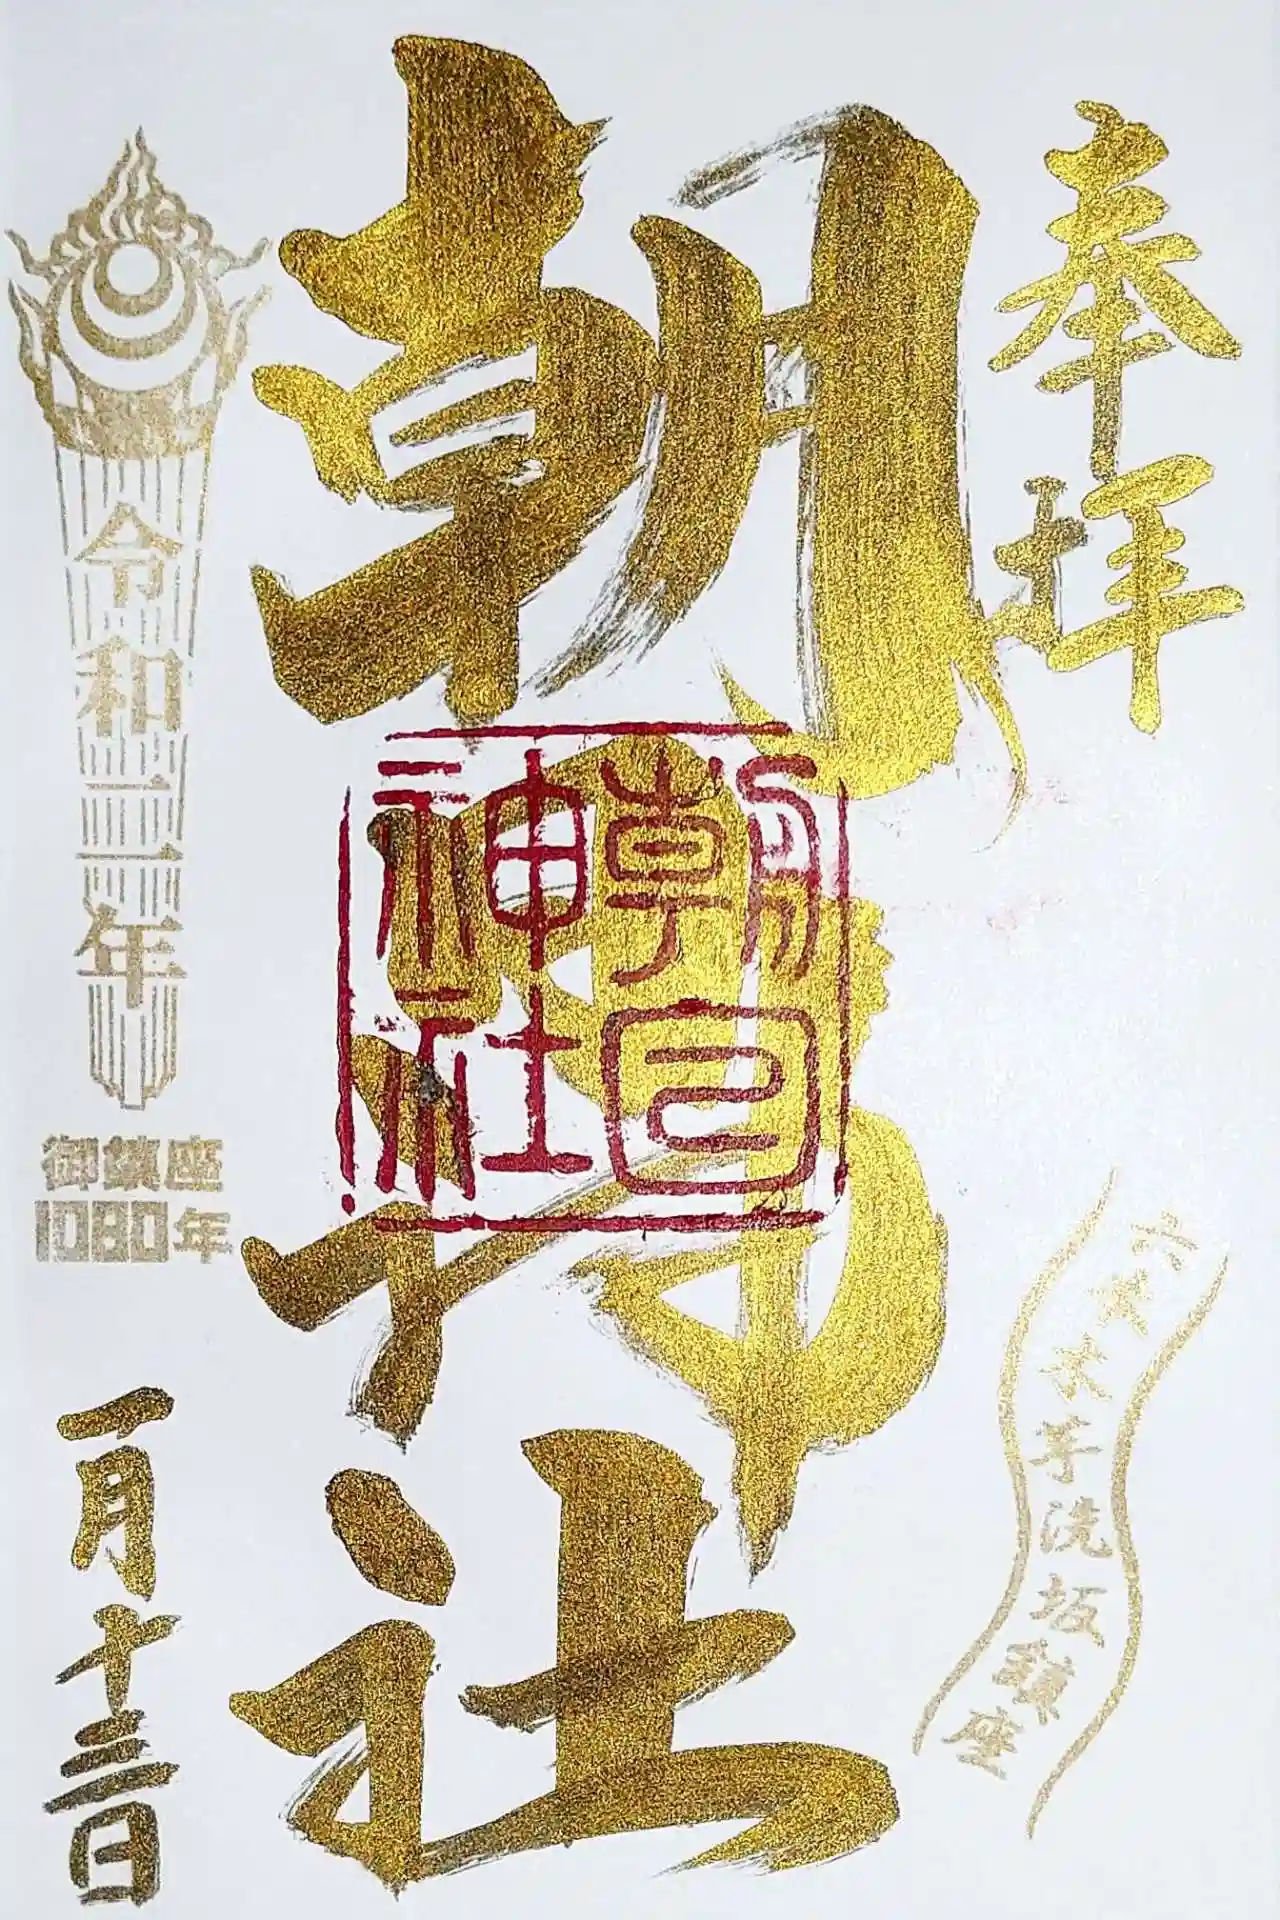 奉拝
六本木芋洗坂鎮座
朝日神社
朝日
神社
令和二年
御鎮座
1080年
一月十三日